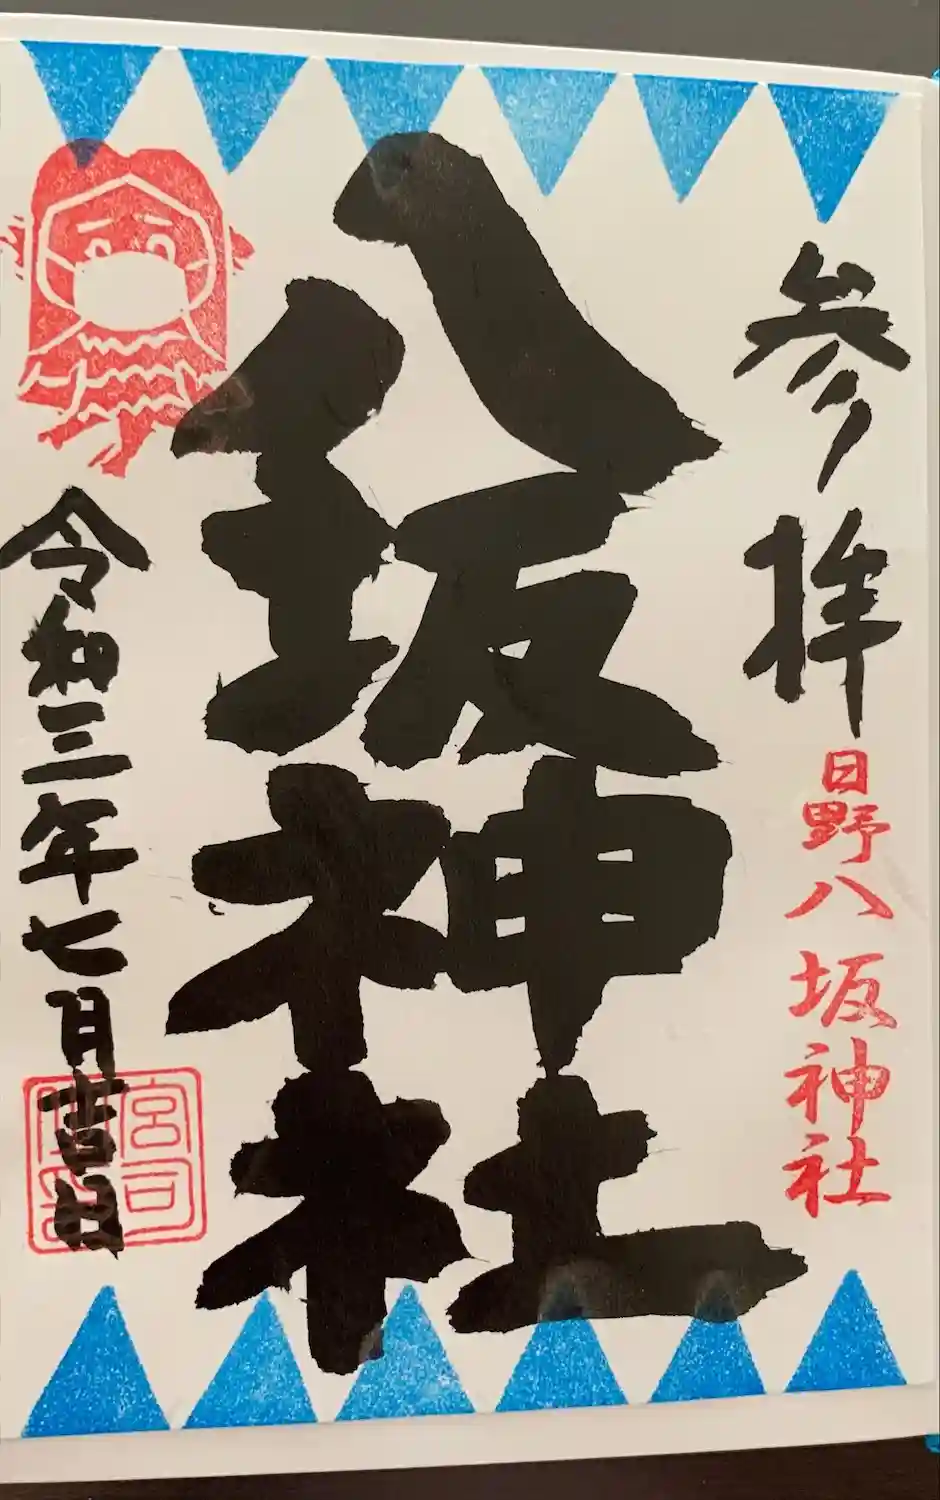 参拝
日野八坂神社
八坂神社
令和三年七月吉日
宮司